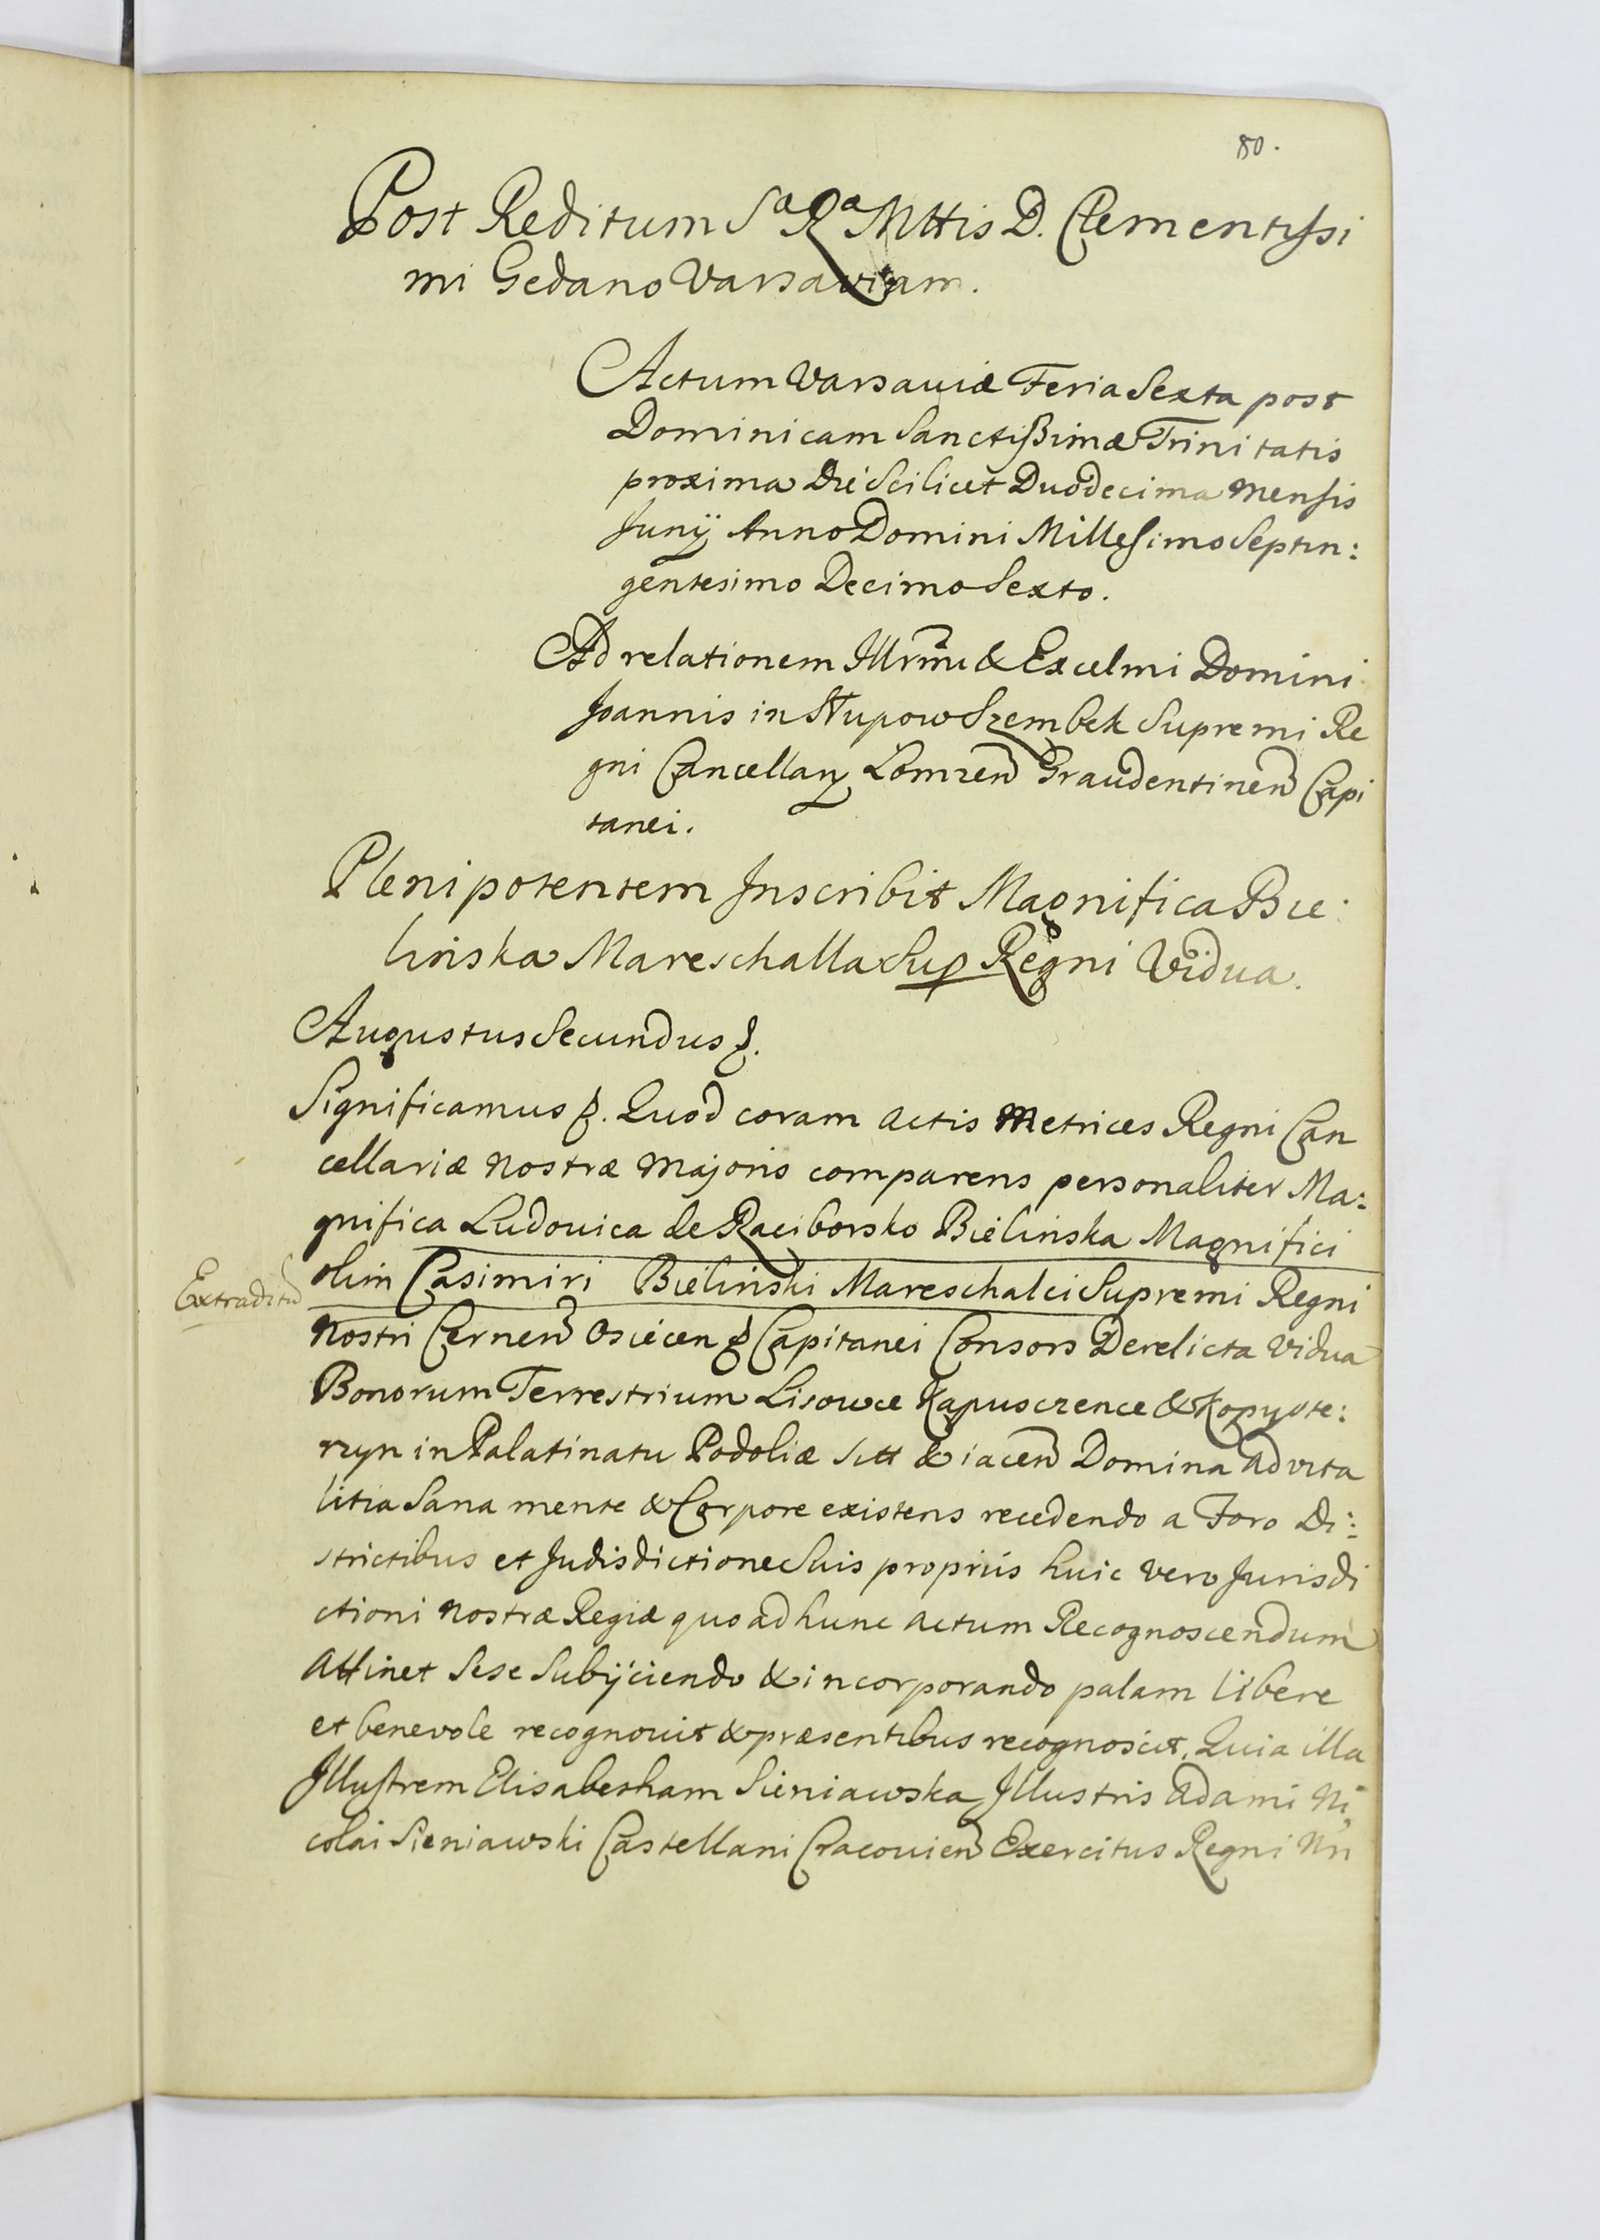 80.
Post Reditum Sa Ra Mttis D. Clementissi
mi Gedano Varsaviam.
Actum Varsaviæ Feria Sexta post
Dominicam Sanctissimæ Trinitatis
proxima Die Scilicet Duodecima Mensis
Junÿ Anno Domini Millesimo Septin:
gentesimo Decimo Sexto.
Ad relationem Illrmi & Excelmi Domini
Joannis in Słupow Szembek Supremi Re
gni Cancellarÿ Lomzen Graudentinen Capi
tanei.
Plenipotentem Inscribit Magnifica Bie:
linska Mareschalla Sup Regni Vidua.
Augustus Secundus &.
Significamus &. Quod coram Actis Metrices Regni Can
cellariæ Nostræ Majoris comparens personaliter Ma:
gnifica Ludovica de Raciborsko Bielinska Magnifici
olim Casimiri Bielinski Mareschalci Supremi Regni
Extraditũ
Nostri Cernen Osiecen & Capitanei Consors Derelicta Vidua
Bonorum Terrestrium Lisowce Kapusczence & Kopyste:
rzyn in Palatinatu Podoliæ sitt & iacen Domina Advita
litia Sana mente & Corpore existens recedendo a Foro Di:
strictibus et Judisdictione Suis proprijs huic vero Jurisdi
ctioni Nostræ Regiæ quo ad hunc Actum Recognoscendum
Attinet Sese Subijciendo & incorporando palam libere
et benevole recognovit & præsentibus recognoscit, Quia illa
Illustrem Elisabetham Sieniawska Illustris Adami Ni
colai Sieniawski Castellani Cracovien Exercitus Regni Nri